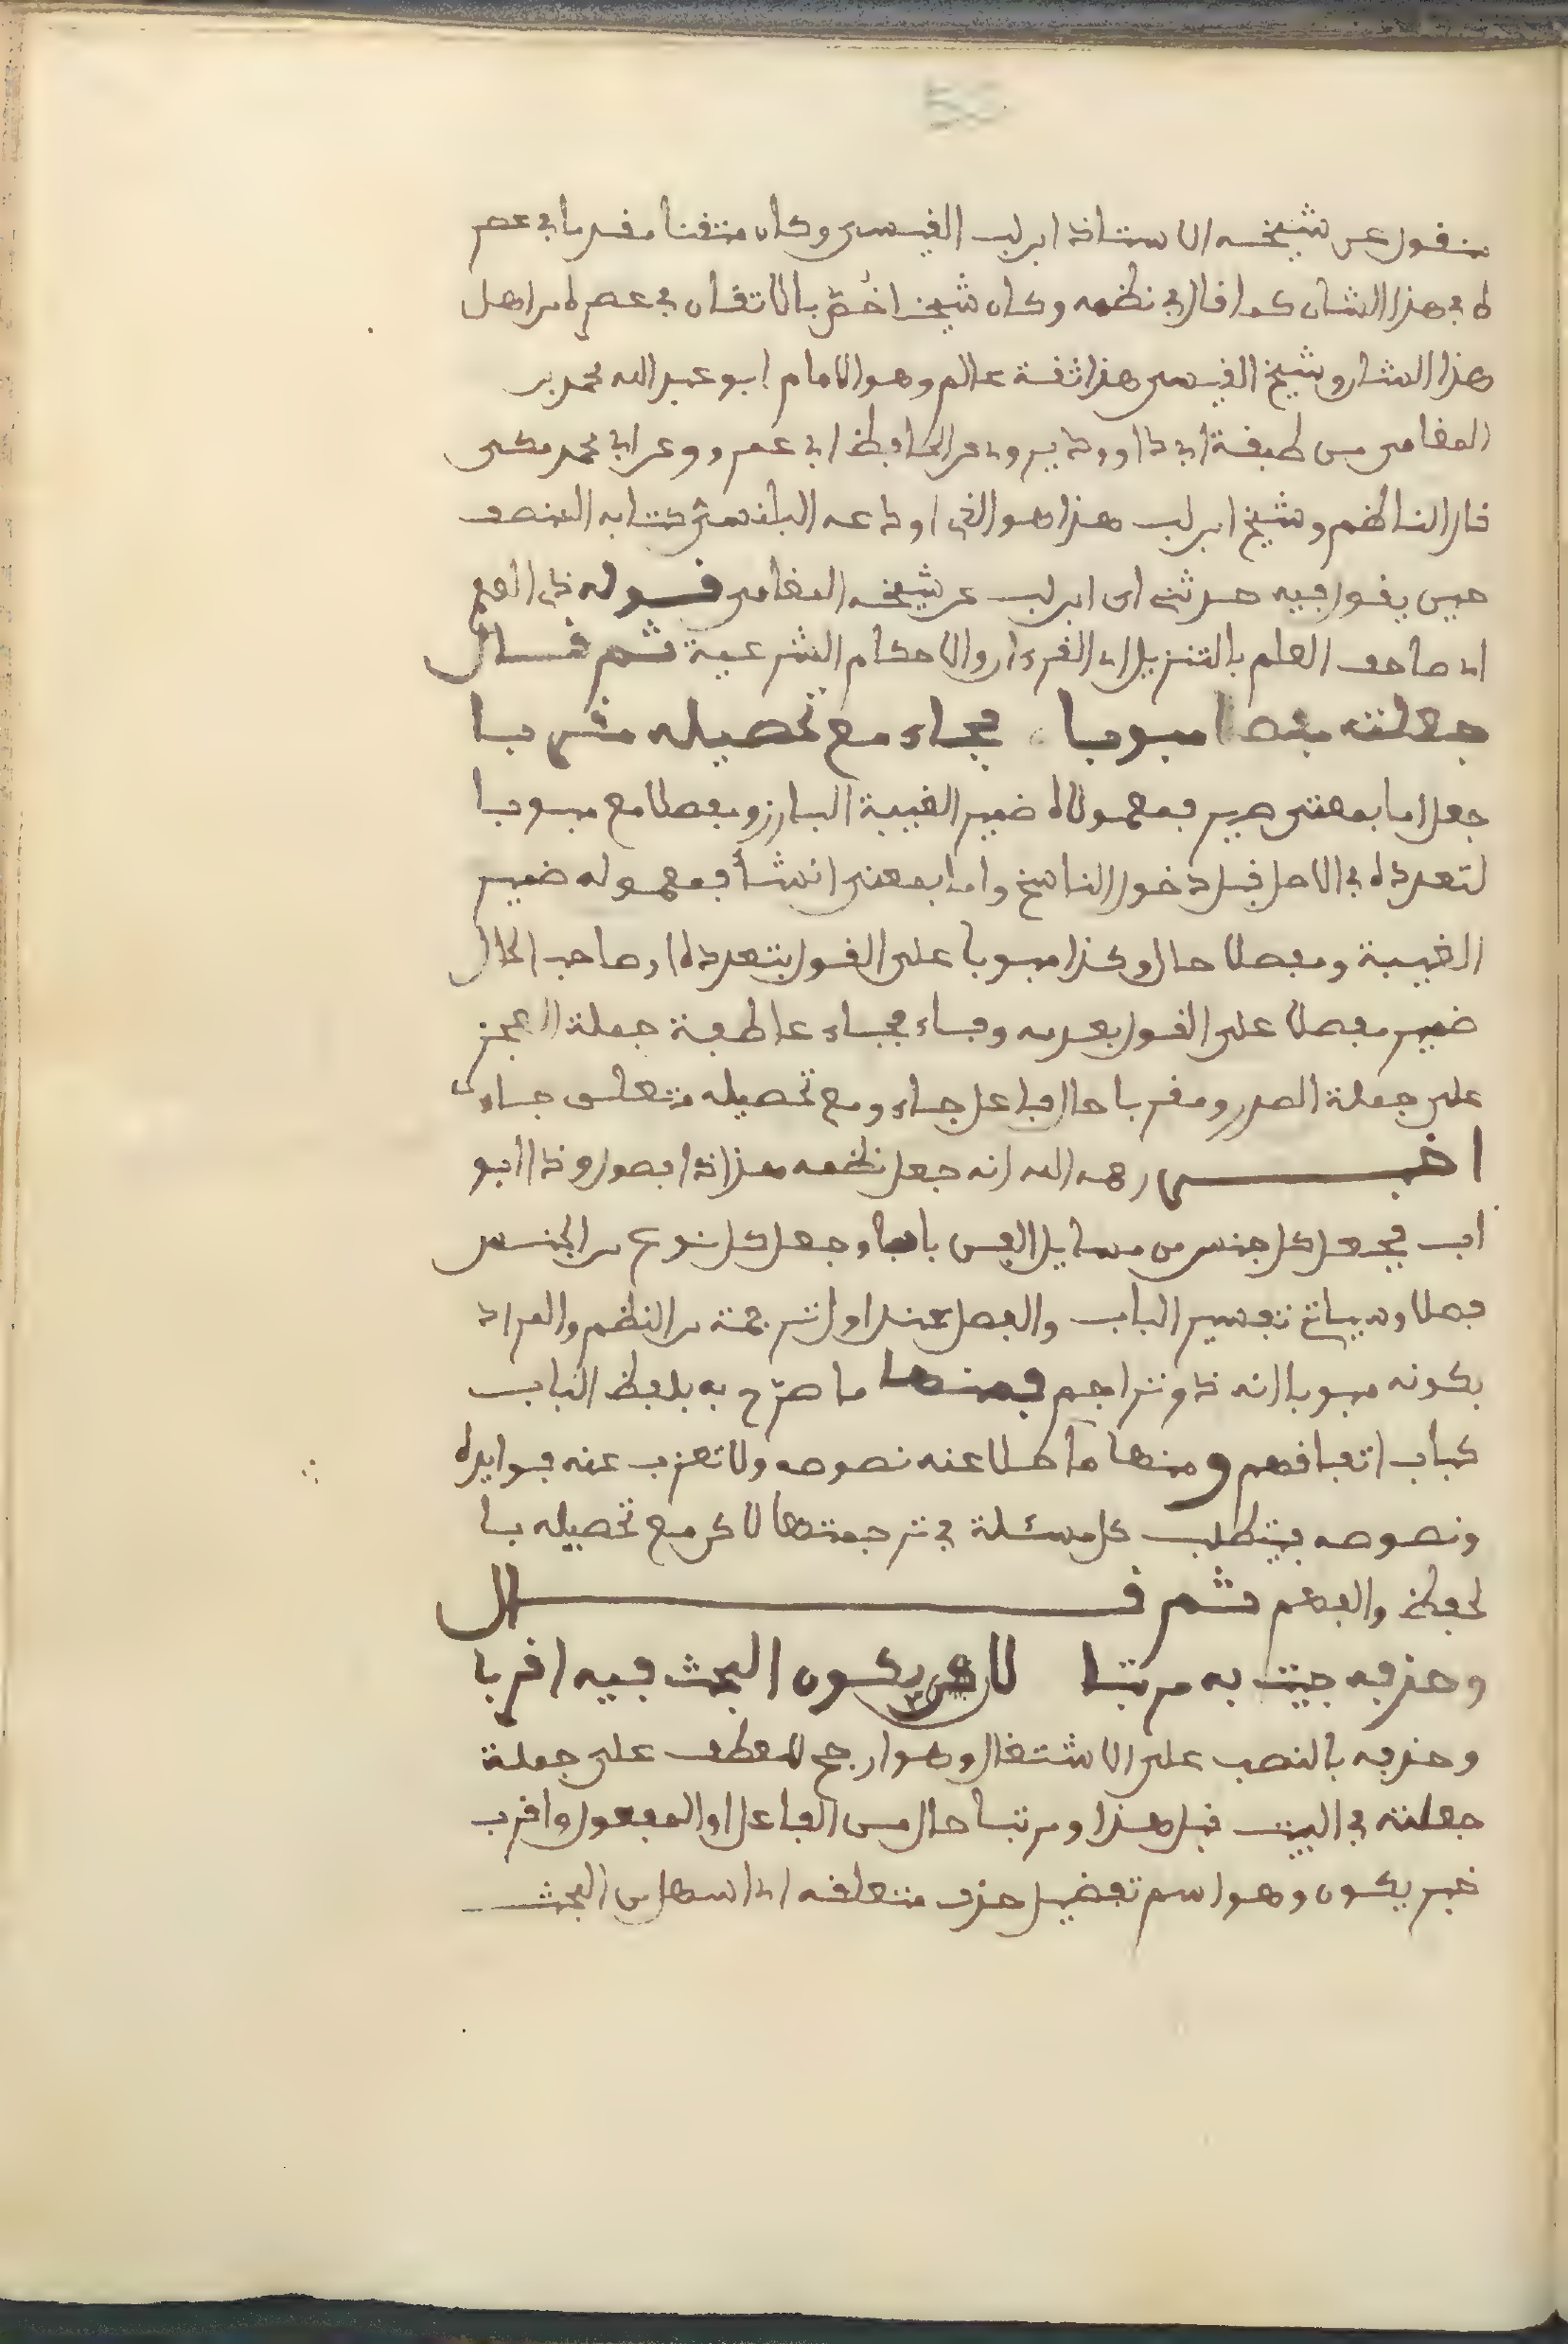 منقول عن شيخه الاستاذ ابن لب القيسي وكان متقنا مقدما في عصر
ه في هذا الشان كما قال في نظمه وكان شيخا خُصّ بالاتقان في عصره من اهل
هذا الشان وشيخ القيسي هذا ثقة عالم وهو الامام ابو عبد الله محمد بن
المغامي من طبقة ابي داوود يروي عن الحافظ ابي عمرو وعن ابي محمد مكي
قال الناظم وشيخ ابن لب هذا هو الذي اودعه البلنسي كتابه المنصف
حين يقول فيه حدثني اي ابن لب عن شيخه المغامي قوله ذي العلم
اي صاحب العلم بالتنزيل اي القرءان والاحكام الشرعية ثم قال
جعلته مفصلا مبوبا فجاء مع تحصيله مقربا
جعل اما بمعنى صير فمعمولاه ضمير الغيبة البارز ومفصلا مع مبوبا
لتعدده في الاصل قبل دخول الناسخ واما بمعنى انشأ فمعموله ضمير
الغيبة ومفصلا حال وكذا مبوبا على القول بتعدده او صاحب الحال
ضمير مفصلا على القول بعدمه وفاء فجاء عاطفة جملة العجز
على جملة الصدر ومقربا حال فاعل جاء ومع تحصيله متعلق جاء
اخبر رحمه الله انه جعل نظمه هذا ذا فصول وذا ابو
اب فجعل كل جنس من مسايل الفن بابا وجعل كل نوع من الجنس
فصلا وسياتي تفسير الباب والفصل عند اول ترجمة من النظم والمراد
بكونه مبوبا انه ذو تراجم فمنها ما صرّح به بلفظ الباب
كباب اتفاقهم ومنها ما خلا عنه نصوصه ولا تعزب عنه فوايده
ونصوصه فيتطلب كل مسئلة في ترجمتها لاكن مع تحصيله با
لحفظ والفهم ثم قال
وحذفه جيت به مرتبا لان يكون البحث فيه اقربا
وحذفه بالنصب على الاشتغال وهو ارجح للعطف على جملة
جعلته في البيت قبل هذا ومرتبا حال من الفاعل او المفعول واقرب
خبر يكون وهو اسم تفضيل حذف متعلقه اي اسهل من البحث